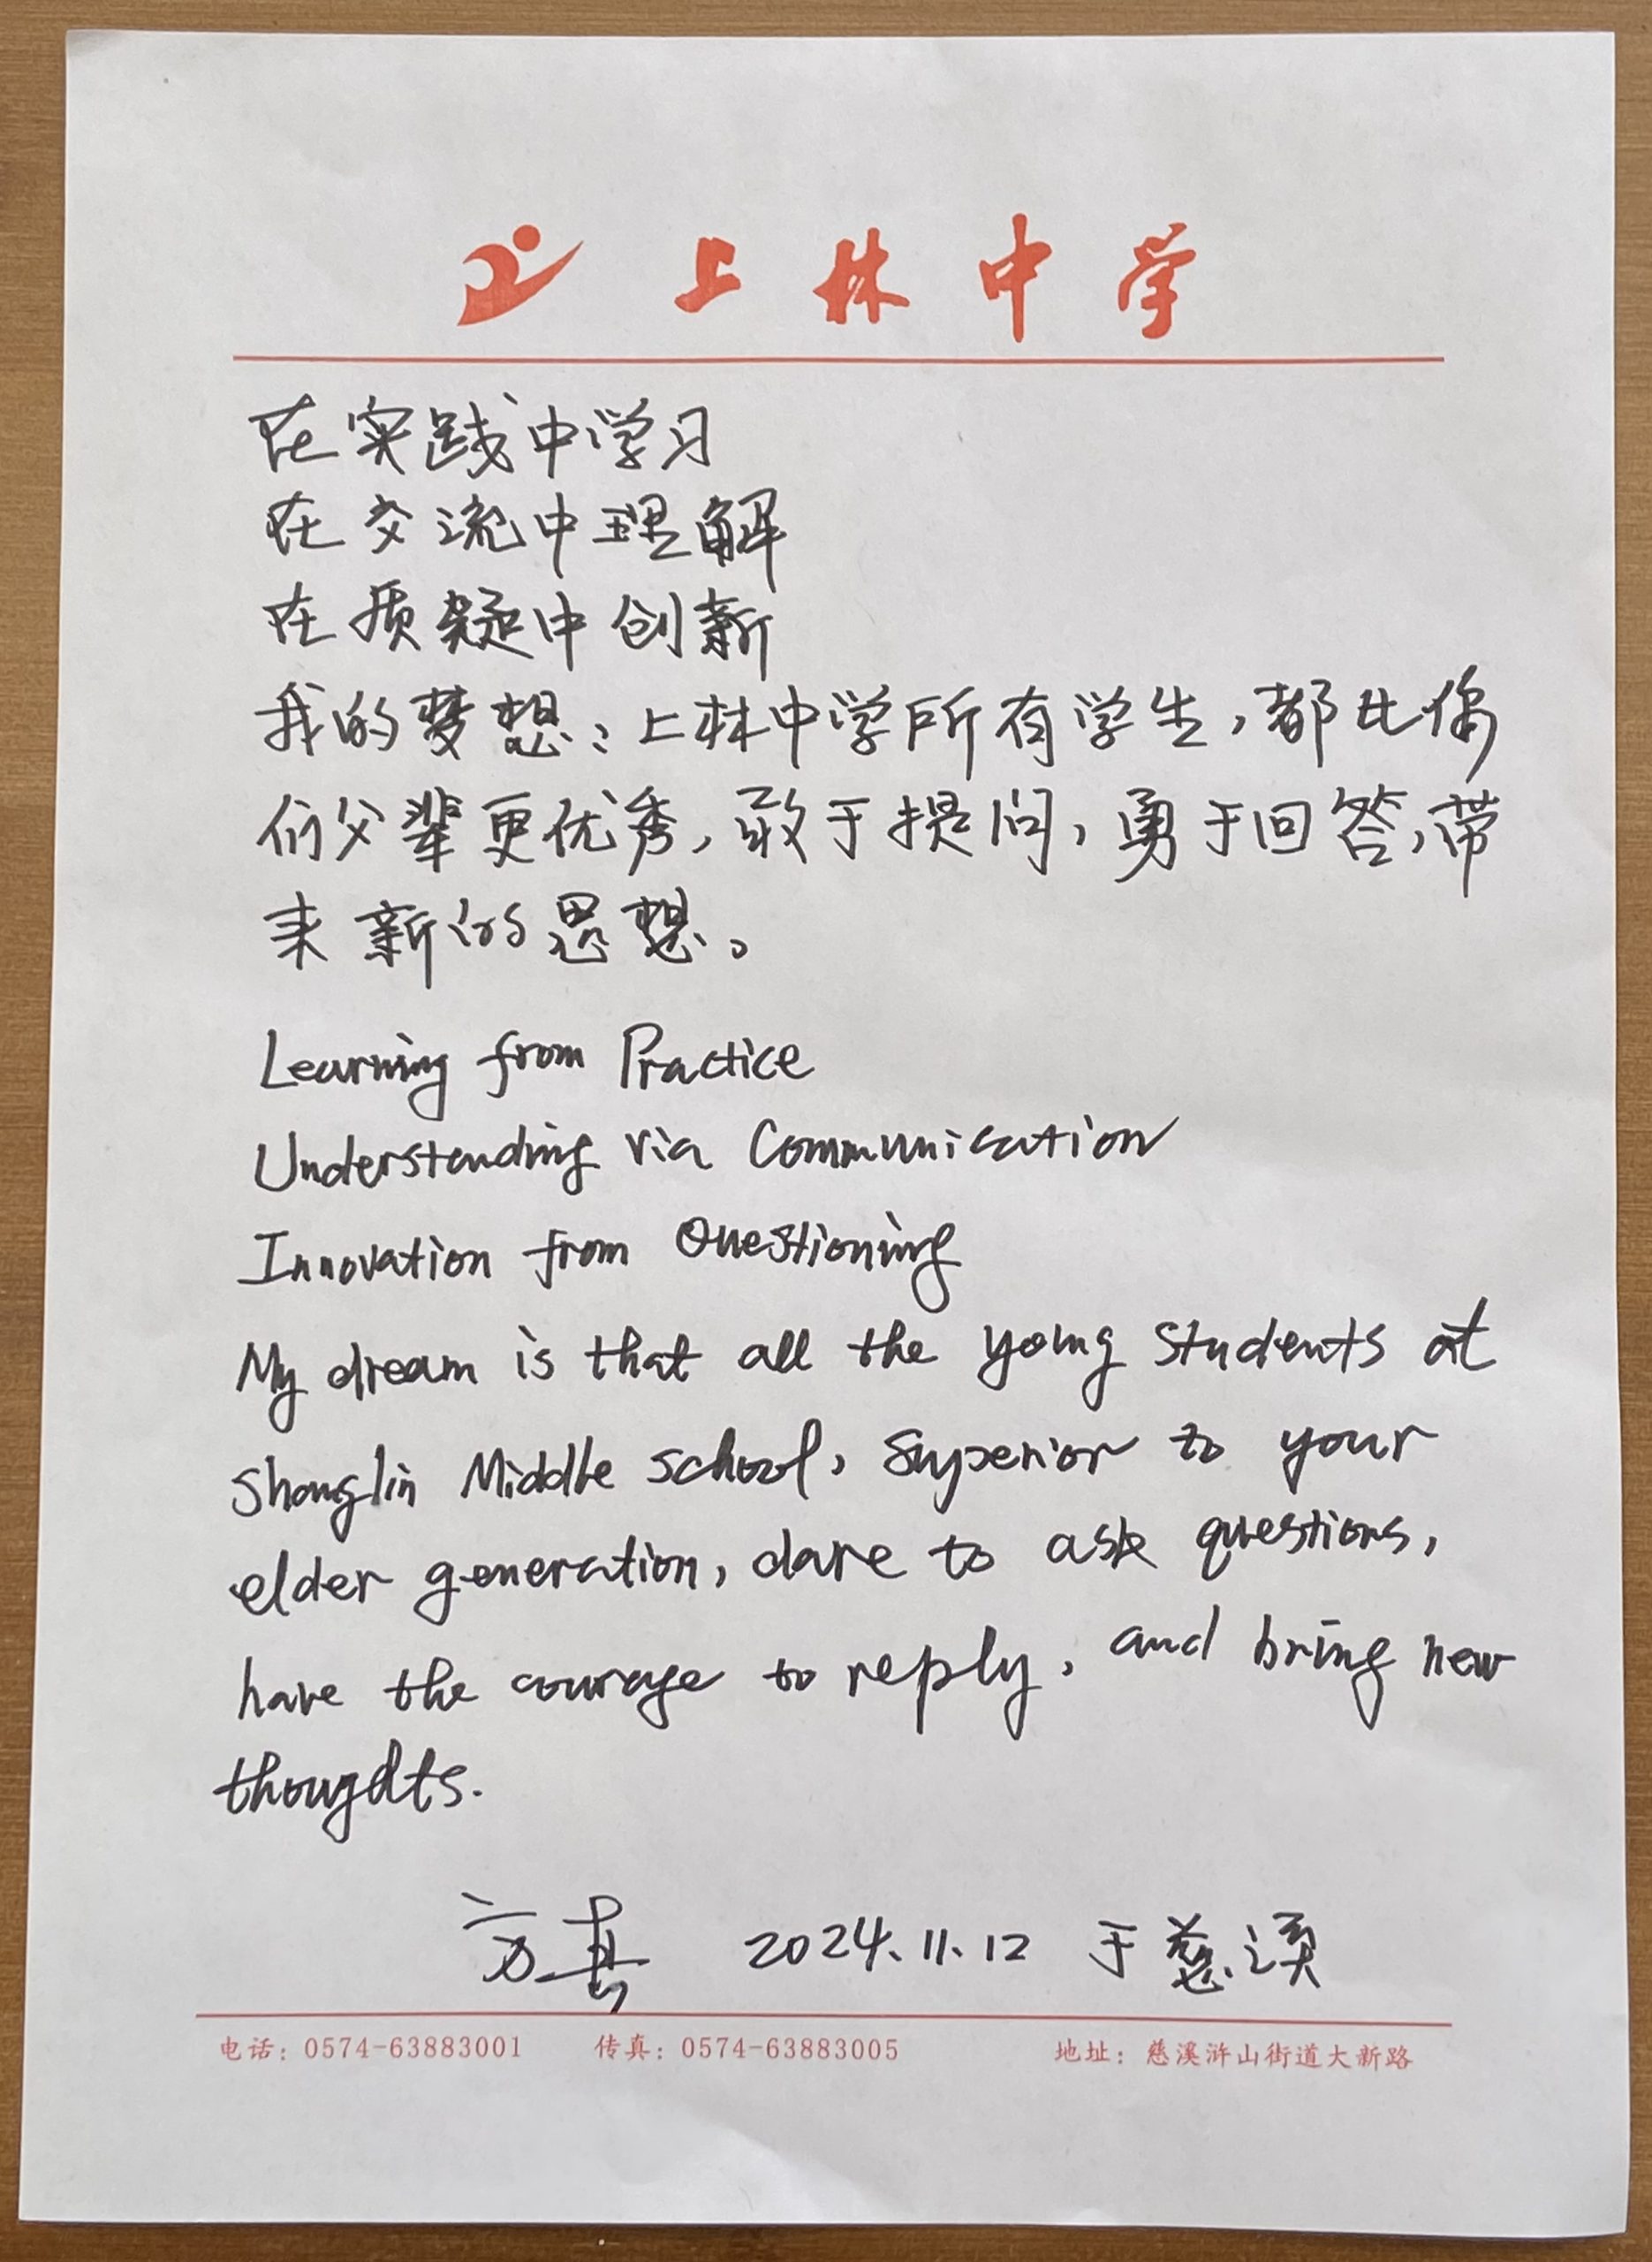 上林中学
在实践中学习
在交流中理解
在质疑中创新
我的梦想：上林中学所有学生，都比你
们父辈更优秀，敢于提问，勇于回答，带
来新的思想。
Learning from Practice
Understanding via Communication
Innovation from Questioning
My dream is that all the young students at
Shanglin Middle school, superior to your
elder generation, dare to ask questions,
have the courage to reply, and bring new
thoughts.
方真 2024.11.12 于慈溪
电话：0574-63883001 传真：0574-63883005 地址：慈溪浒山街道大新路